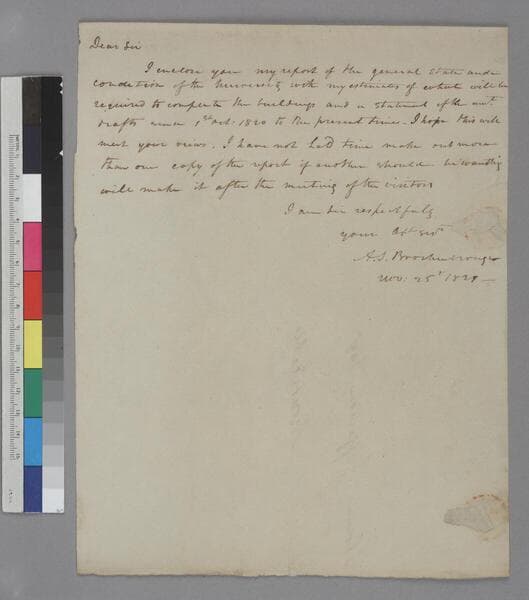 Dear Sir
I enclose you my report of the general state and
condition of the University with my estimates of what will be
required to compleate the buildings and a statement of the amt.
drafts since 1st Oct: 1820 to the present time. I hope this will
meet your views. I have not had time make out more
than one copy of the report if another should be wanting
will make it after the meeting of the visitors
I am Sir respectfully
your Obt Servt
A. S. Brockenbrough
Nov. 25t 1821